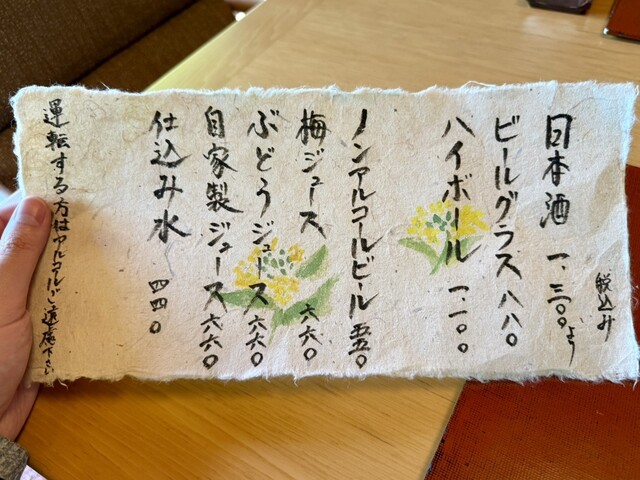 税込み
日本酒 一、三〇〇より
ビールグラス 八八〇
ハイボール 一、一〇〇
ノンアルコールビール 五五〇
梅ジュース 六六〇
ぶどうジュース 六六〇
自家製ジュース 六六〇
仕込み水 四四〇
運転する方はアルコールご遠慮下さい